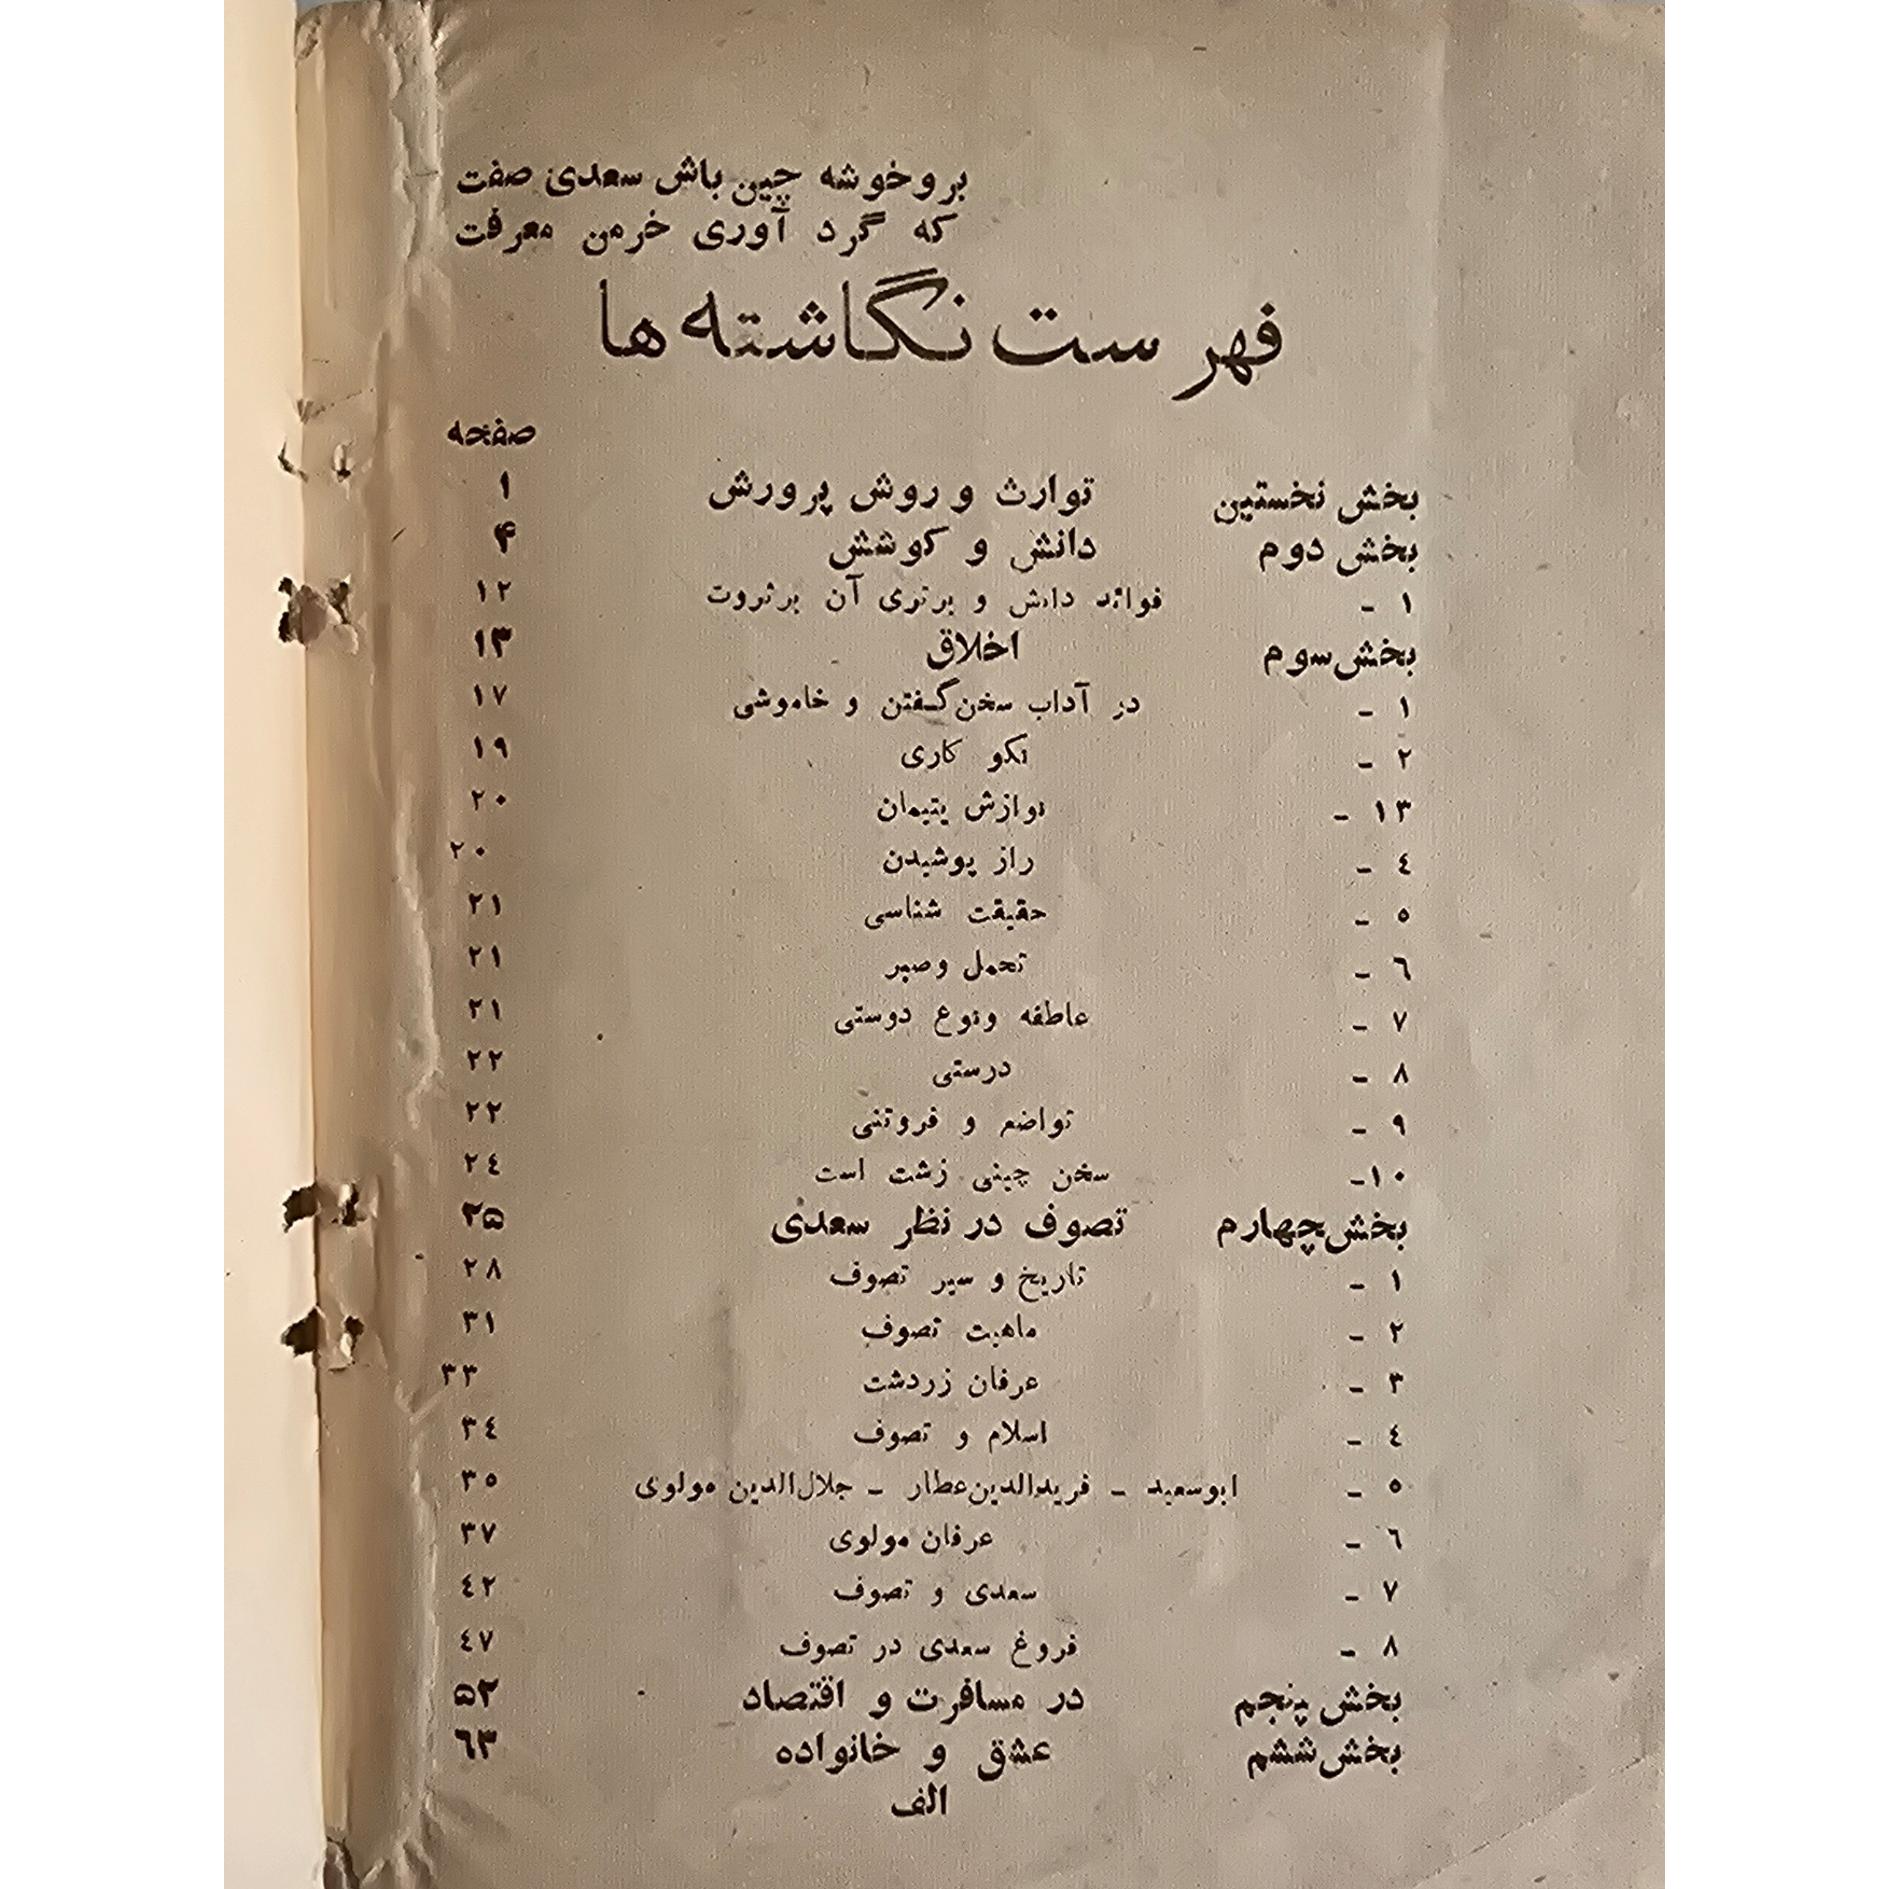 برو خوشه چین باش سعدی صفت
که گرد آوری خرمن معرفت
فهرست نگاشته ها
صفحه
بخش نخستین توارث و روش پرورش ۱
بخش دوم دانش و کوشش ۴
۱ - فوائد دانش و برتری آن برثروت ۱۲
بخش سوم اخلاق ۱۳
۱ - در آداب سخن گفتن و خاموشی ۱۷
۲ - نکو کاری ۱۹
۱۳ - نوازش یتیمان ۲۰
٤ - راز پوشیدن ۲۰
۵ - حقیقت شناسی ۲۱
٦ - تحمل وصبر ۲۱
۷ - عاطفه ونوع دوستی ۲۱
۸ - درستی ۲۲
۹ - تواضع و فروتنی ۲۲
۱۰- سخن چینی زشت است ۲٤
بخش چهارم تصوف در نظر سعدی ۲۵
۱ - تاریخ و سیر تصوف ۲۸
۲ - ماهیت تصوف ۳۱
۳ - عرفان زردشت ۳۳
٤ - اسلام و تصوف ۳٤
۵ - ابوسعید - فریدالدین عطار - جلال الدین مولوی ۳۵
٦ - عرفان مولوی ۳۷
۷ - سعدی و تصوف ٤۲
۸ - فروغ سعدی در تصوف ٤۷
بخش پنجم در مسافرت و اقتصاد ۵۲
بخش ششم عشق و خانواده ٦۳
الف